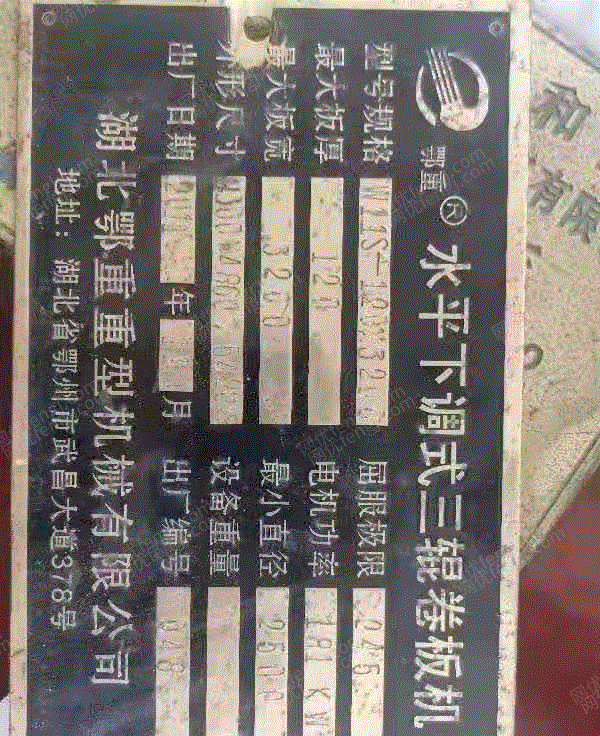 鄂重 ® 水平下调式三辊卷板机
型号规格 W11S-120*32 屈服极限 245
最大板厚 120 电机功率 181 KW
最大板宽 3200 最小直径 2500
外形尺寸 设备重量
出厂日期 年 月 出厂编号
湖北鄂重重型机械有限公司
地址：湖北省鄂州市武昌大道378号
和
有限